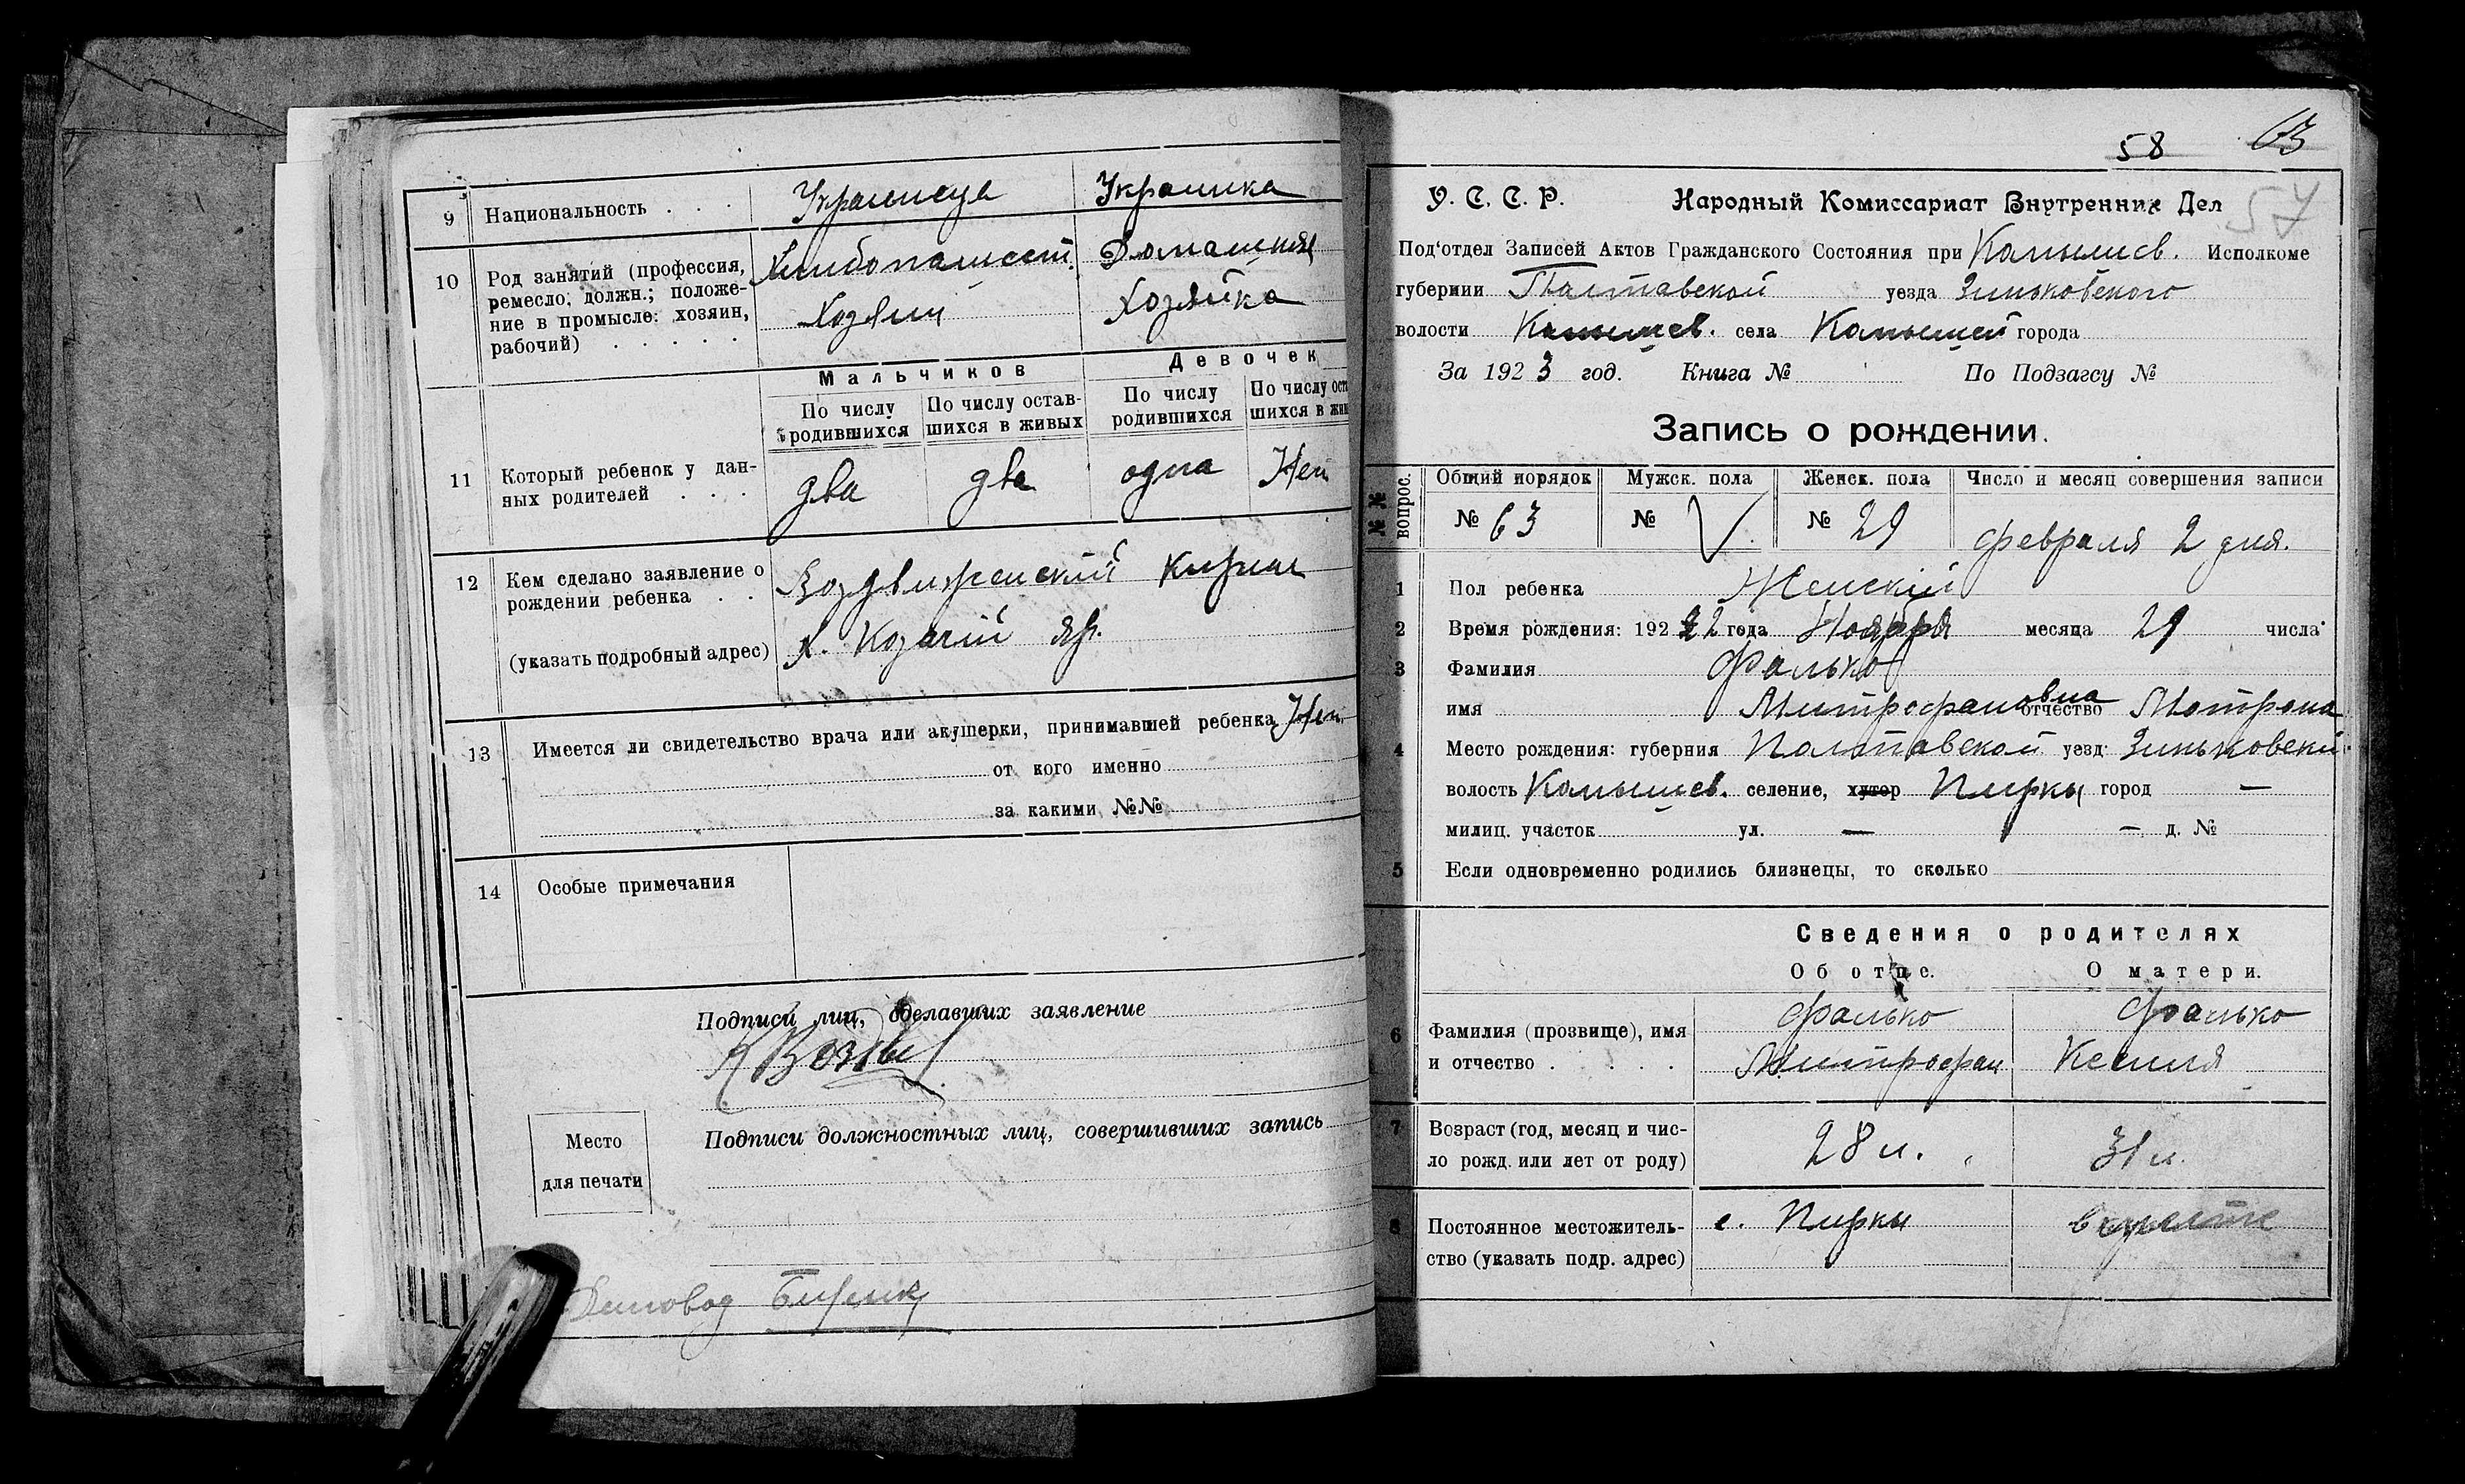 9 Национальность . . . Украинец Украинка
10 Род занятий (профессия, Хлебопашест. Домашняя
ремесло, должн.; положе- Хозяин Хозяйка
ние в промысле: хозяин,
рабочий) . . . . .
Мальчиков Девочек
По числу родившихся По числу остав-шихся в живых По числу родившихся По числу ост шихся в жив
11 Который ребенок у дан- два два одна Нет
ных родителей . . .
12 Кем сделано заявление о Воздвиженский Кирил
рождении ребенка . .
(указать подробный адрес) х. Козачій Яр.
13 Имеется ли свидетельство врача или акушерки, принимавшей ребенка Нет
от кого именно
за какими №№
14 Особые примечания
Подписи лиц, сделавших заявление
К Воздв
Место
для печати
Подписи должностных лиц, совершивших запись
58 63
57
У. С. С. Р. Народный Комиссариат Внутренних Дел
Под‘отдел Записей Актов Гражданского Состояния при Камышев. Исполкоме
губернии Полтавской уезда Зиньковского
волости Камышев. села Камышей города
За 1923 год. Книга № По Подзагсу №
Запись о рождении.
№№ вопрос. Общий порядок Мужск. пола Женск. пола Число и месяц совершения записи
№ 63 № № 29 февраля 2 дня.
1 Пол ребенка Женскій
2 Время рождения: 1922 года Ноября месяца 29 числа
3 Фамилия Фалько
имя Митрофановна отчество Мотрона
4 Место рождения: губерния Полтавской уезд Зиньковский
волость Камышев. селение, хутор Пирки город —
милиц. участок ул. — — д. №
5 Если одновременно родились близнецы, то сколько
Сведения о родителях
Об отце. О матери.
6 Фамилия (прозвище), имя Фалько Фалько
и отчество . . . . . Митрофан Ксения
7 Возраст (год, месяц и чис- 28 л. 31 л.
ло рожд. или лет от роду)
8 Постоянное местожитель- с. Пирки
ство (указать подр. адрес)